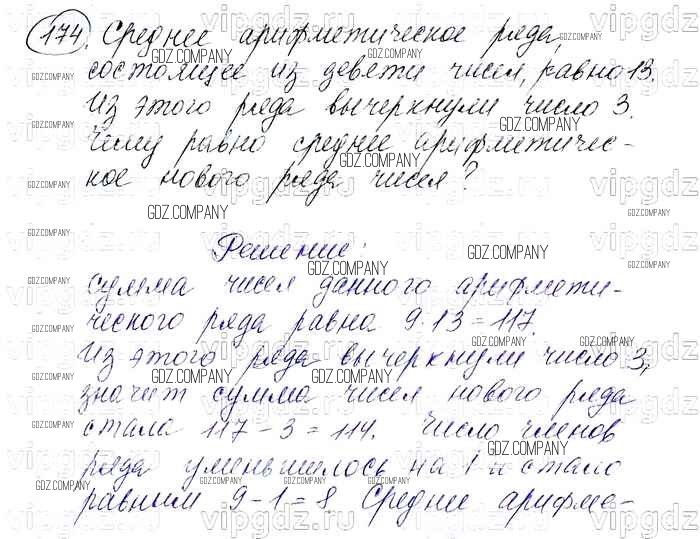 174. Среднее арифметическое ряда,
состоящее из девяти чисел, равно 13.
Из этого ряда вычеркнули число 3.
Чему равно среднее арифметичес-
кое нового ряда чисел?
Решение:
Сумма чисел данного арифмети-
ческого ряда равна 9·13=117.
Из этого ряда вычеркнули число 3,
значит сумма чисел нового ряда
стала 117-3=114. Число членов
ряда уменьшилось на 1 и стало
равным 9-1=8. Среднее арифме-